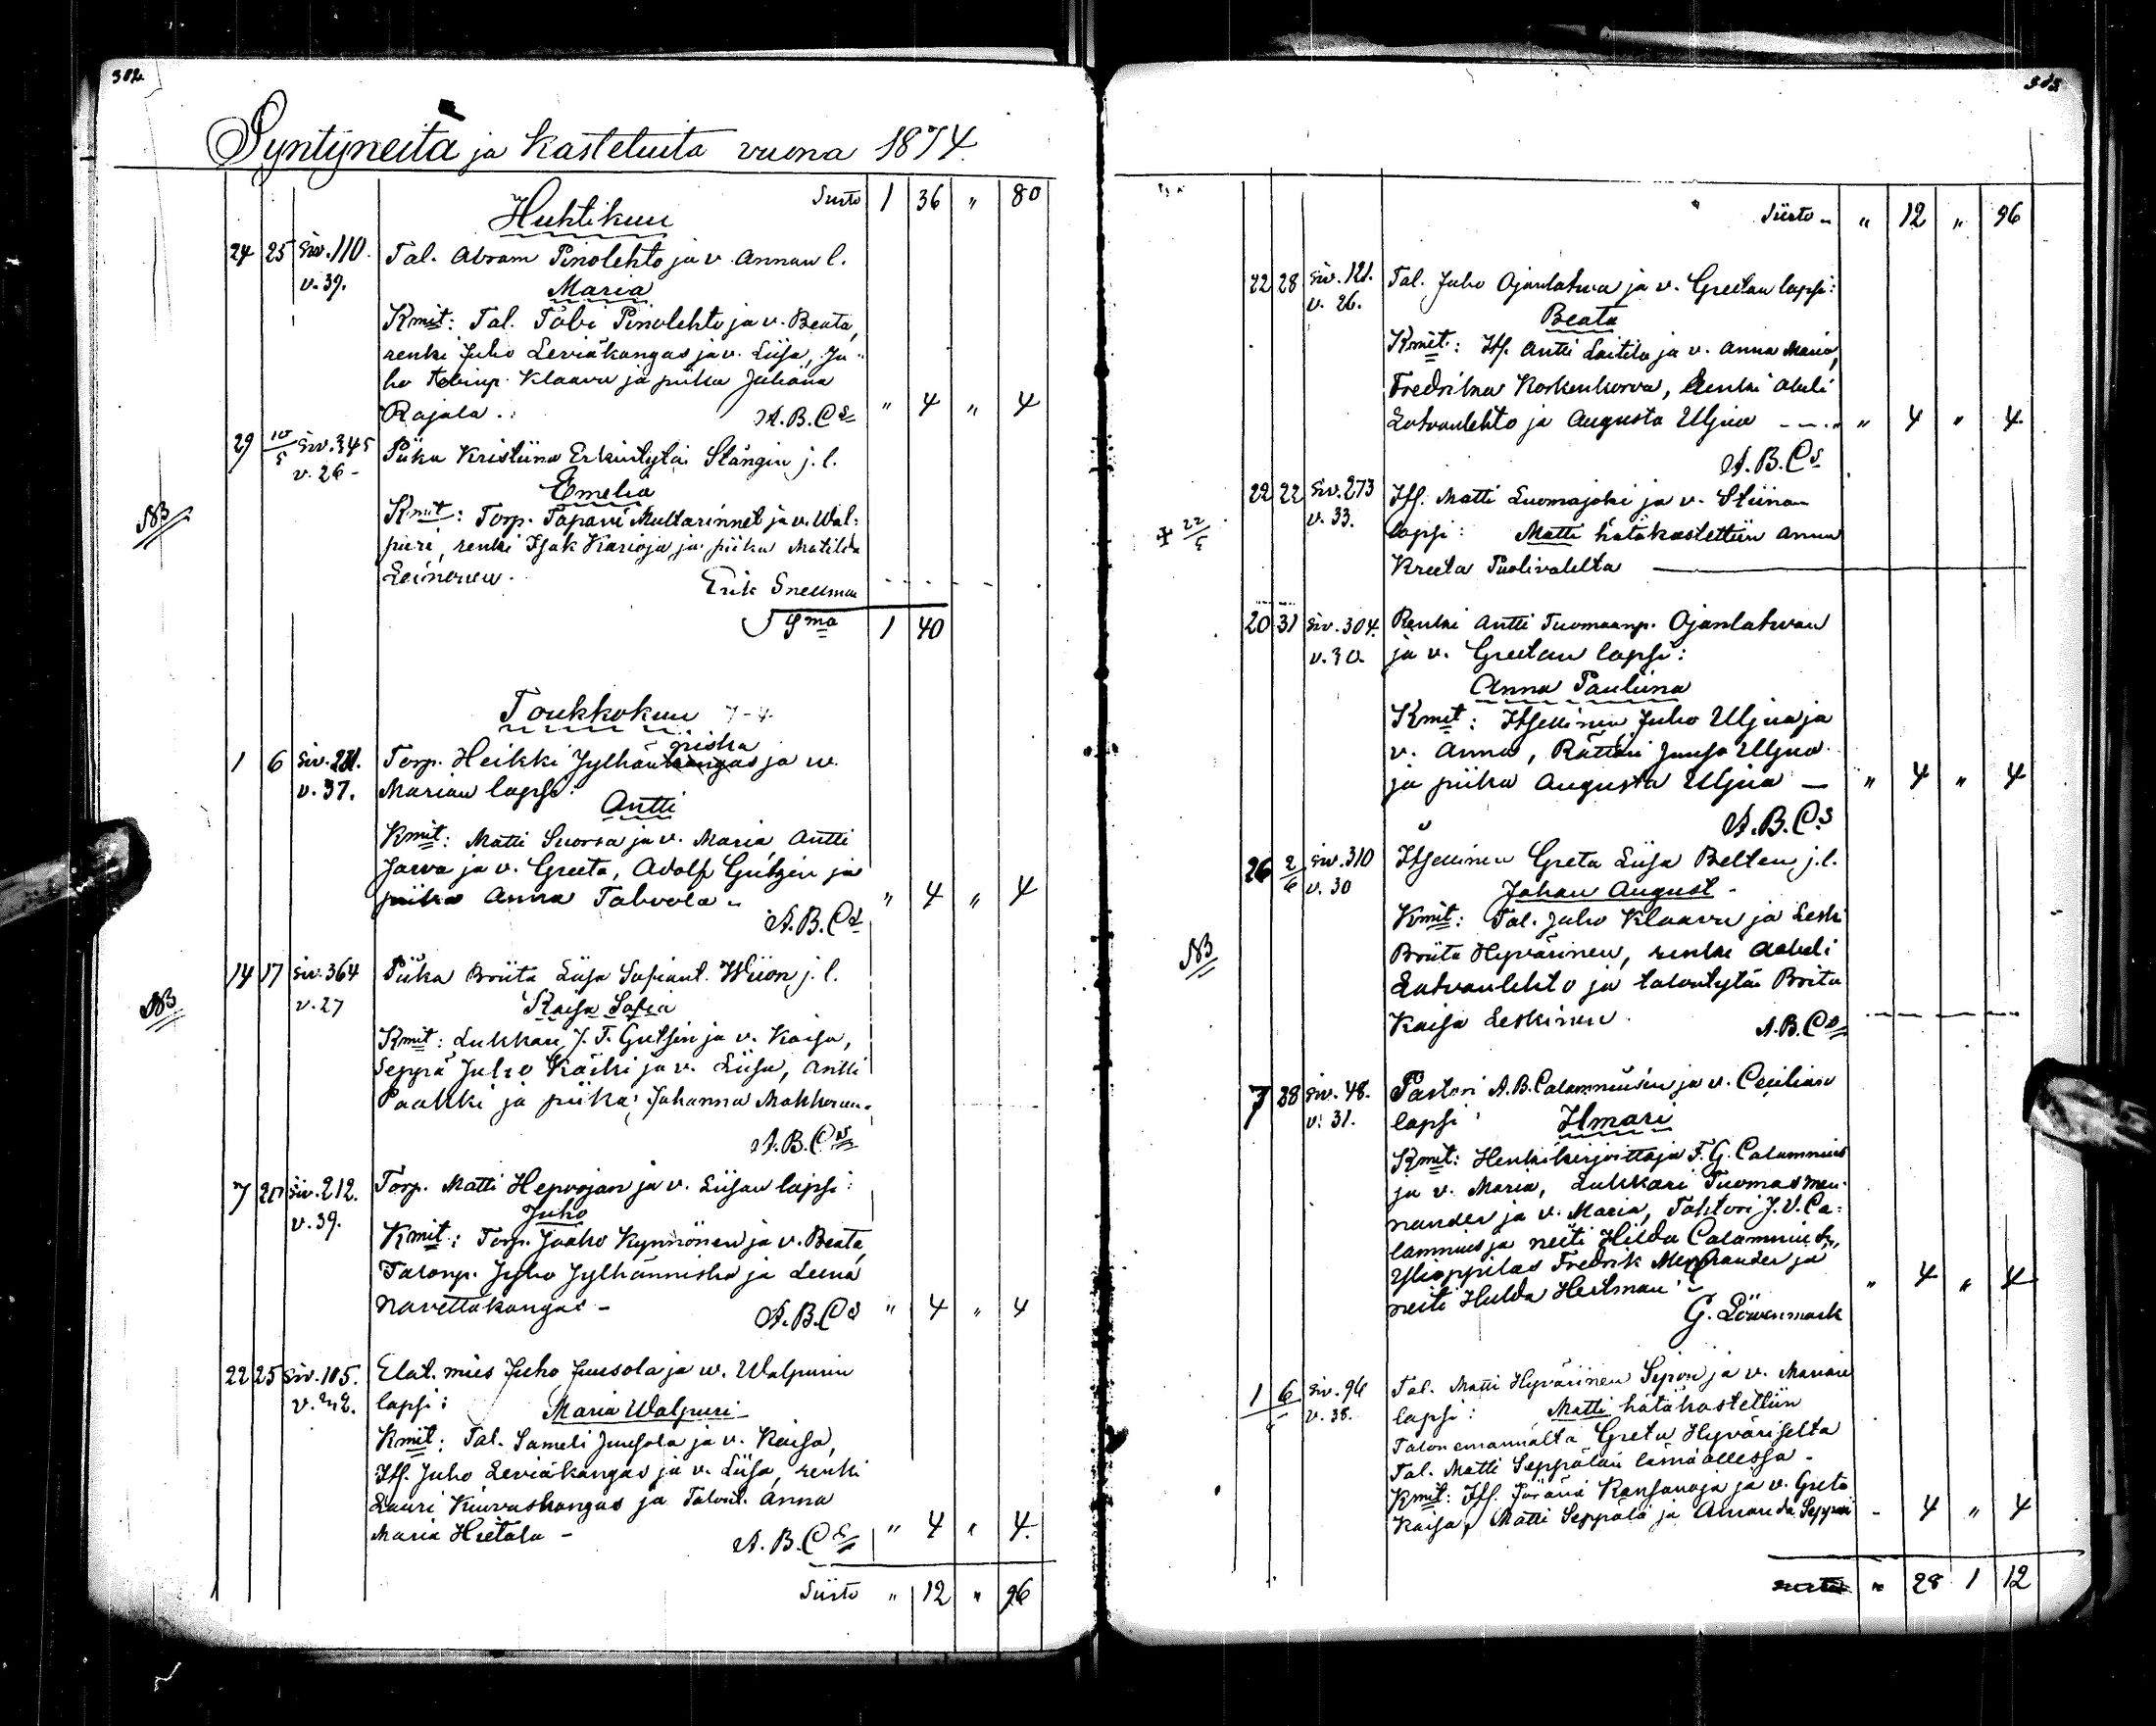 302
Syntyneitä ja kasteluita vuona 1874.
Huhtikuu
Siirto 1 36 " 80
24 25 Siv. 110. Tal. Abram Pinolehto ja v. Annan l.
v. 39. Maria
Kmit: Tal. Tobi Pinolehto ja v. Beata,
renki Juho Leviäkangas ja v. Liisa, Ju-
ho Klaavu ja piika Juliana
Rajala. A.B.Cs " 4 " 4
29 10/5 Siv. 345 Piika Kristiina Erkintytär Stångin j. l.
v. 26 - Emelia
NB Kmit: Torp. Tapani Multarinnet ja v. Wal-
puri, renki Isak Karioja ja piika Matilda
Leinonen. Erik Snellman
Sma 1 40
Toukkokuu 7-4.
niska
1 6 Siv. 231. Torp. Heikki Jylhänkangas ja w.
v. 37. Marian lapsi:
Antti
Kmit: Matti Suorsa ja v. Maria, Antti
Jarva ja v. Greeta, Adolf Gutzén ja
piika Anna Tahvola " 4 " 4
A.B.Cs
14 17 Siv. 364 Piika Briita Liisa Sofiant. Wiion j. l.
v. 27 Kaisa Sofia
NB Kmit: Lukkari J. T. Gutsén ja v. Kaisa,
Seppä Juho Käski ja v. Liisa, Antti
Paakki ja piika Johanna Makkonen.
A.B.Cs
7 20 Siv. 212. Torp. Matti Hepoojan ja v. Liisan lapsi:
v. 39. Juho
Kmit: Torp. Jaako Kynnönen ja v. Beata,
Talonp. Juho Jylhänniska ja Leena
Navettakangas - A.B.Cs " 4 " 4
22 25 Siv. 105. Elat. mies Juho Juusola ja w. Walpurin
v. 42. lapsi: Maria Walpuri
Kmit: Tal. Sameli Juusola ja v. Kaisa,
Its. Juho Leviäkangas ja v. Liisa, renki
Lauri Kiuvaskangas ja Talont. Anna
Maria Hietala - A.B.Cs " 4 " 4.
Siirto " 12 " 96
303
Siirto - " 12 " 96
22 28 Siv. 121. Tal. Juho Ojanlatwa ja v. Greetan lapsi:
v. 26. Beata
Kmit: Its. Antti Laitila ja v. Anna Maria,
Fredrika Koskenkorva, Renki Abeli
Latvanlehto ja Augusta Uljua - - " 4 " 4.
A.B.Cs
22 22 Siv. 273 Its. Matti Luomajoki ja v. Stiinan
+ 22/5 v. 33. lapsi: Matti hätäkastettiin Anna
Kreeta Puolivalelta
20 31 Siv. 304. Renki Antti Tuomaanp. Ojanlatwan
v. 30. ja v. Greetan lapsi:
Anna Pauliina
Kmit: Itsellinen Juho Uljua ja
v. Anna, Räätäli Junso Uljua
ja piika Augusta Uljua - " 4 " 4
A.B.Cs
26 2/6 Siv. 310 Itsellinen Greta Liisa Belten j. l.
v. 30 Johan August -
Kmit: Tal. Juho Klaavu ja Leski
NB Briita Hyvärinen, renki Aabeli
Latvanlehto ja talontytär Brita
Kaisa Leskinen. A.B.Cs
7 28 Siv. 48. Pastori A.B. Calamniusen ja v. Cecilian
v. 31. lapsi: Ilmari
Kmit: Henkikirjoittaja F. G. Calamnius
ja v. Maria, Lukkari Tuomas Men-
nander ja v. Maria, Tohtori J. V. Ca-
lamnius ja neiti Hilda Calamnius,
Ylioppilas Fredrik Mennander ja
neiti Hulda Heitman " 4 " 4
G. Löwenmark
1 6 Siv. 96 Tal. Matti Hyvärinen Sipon ja v. Marian
v. 38. lapsi: Matti hätäkastettiin
Talonemännältä Greta Hyväriseltä
Tal. Matti Seppälän läsnäollessa -
Kmit: Its. Yrjänä Kansanoja ja v. Greta
Kaisa, Matti Seppälä ja Amanda Seppäri - 4 " 4
Siirto " 28 1 12